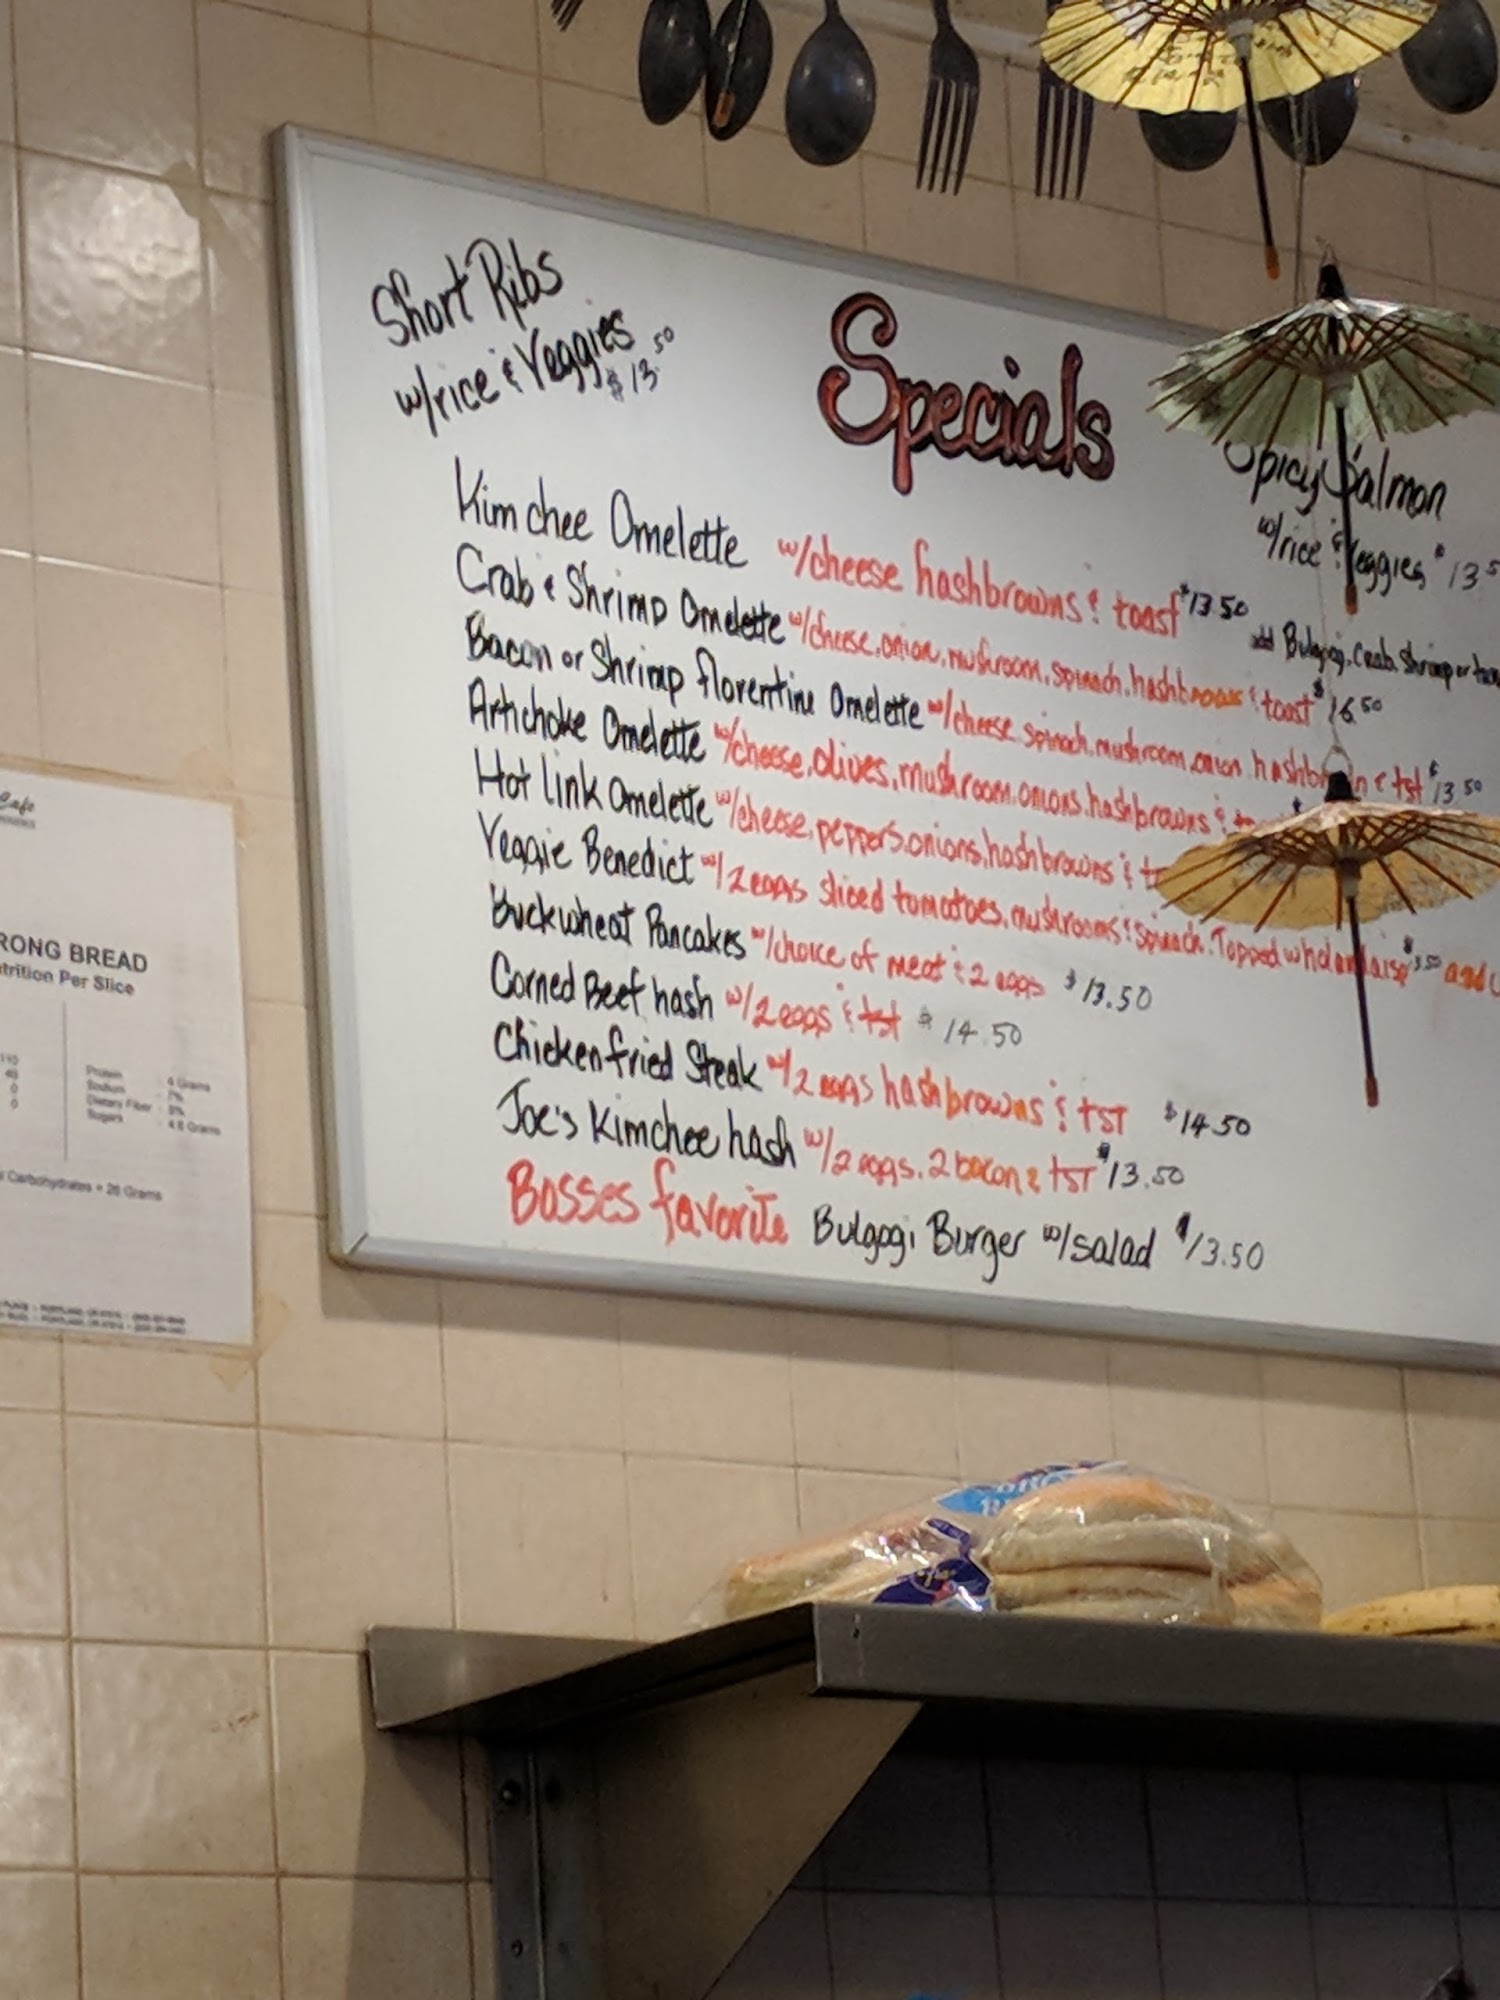 Short Ribs
w/rice & Veggies
$13.50
Specials
Spicy Salmon
w/rice & Veggies $13
Kimchee Omelette w/cheese hashbrowns & toast $13.50
add Bulgogi, Crab, Shrimp or
Crab & Shrimp Omelette w/cheese, onion, mushroom, spinach, hashbrowns & toast $16.50
Bacon or Shrimp florentine Omelette w/cheese, spinach, mushroom, onion, hashbrown & tst $13.50
Artichoke Omelette w/cheese, olives, mushroom, onions, hashbrowns &
Hot link Omelette w/cheese, peppers, onions, hashbrowns &
Veggie Benedict w/2 eggs sliced tomatoes, mushrooms & spinach. Topped
Buckwheat Pancakes w/choice of meat & 2 eggs $13.50
Corned Beef hash w/2 eggs & tst $14.50
Chicken fried Steak w/2 eggs hashbrowns & tst $14.50
Joe's Kimchee hash w/2 eggs, 2 bacon & tst $13.50
Bosses favorite Bulgogi Burger w/salad $13.50
Cafe
RONG BREAD
trition Per Slice
110
Protein 6 Grams
Sodium 7%
Dietary Fiber
Sugars 4.8 Grams
Carbohydrates = 26 Grams